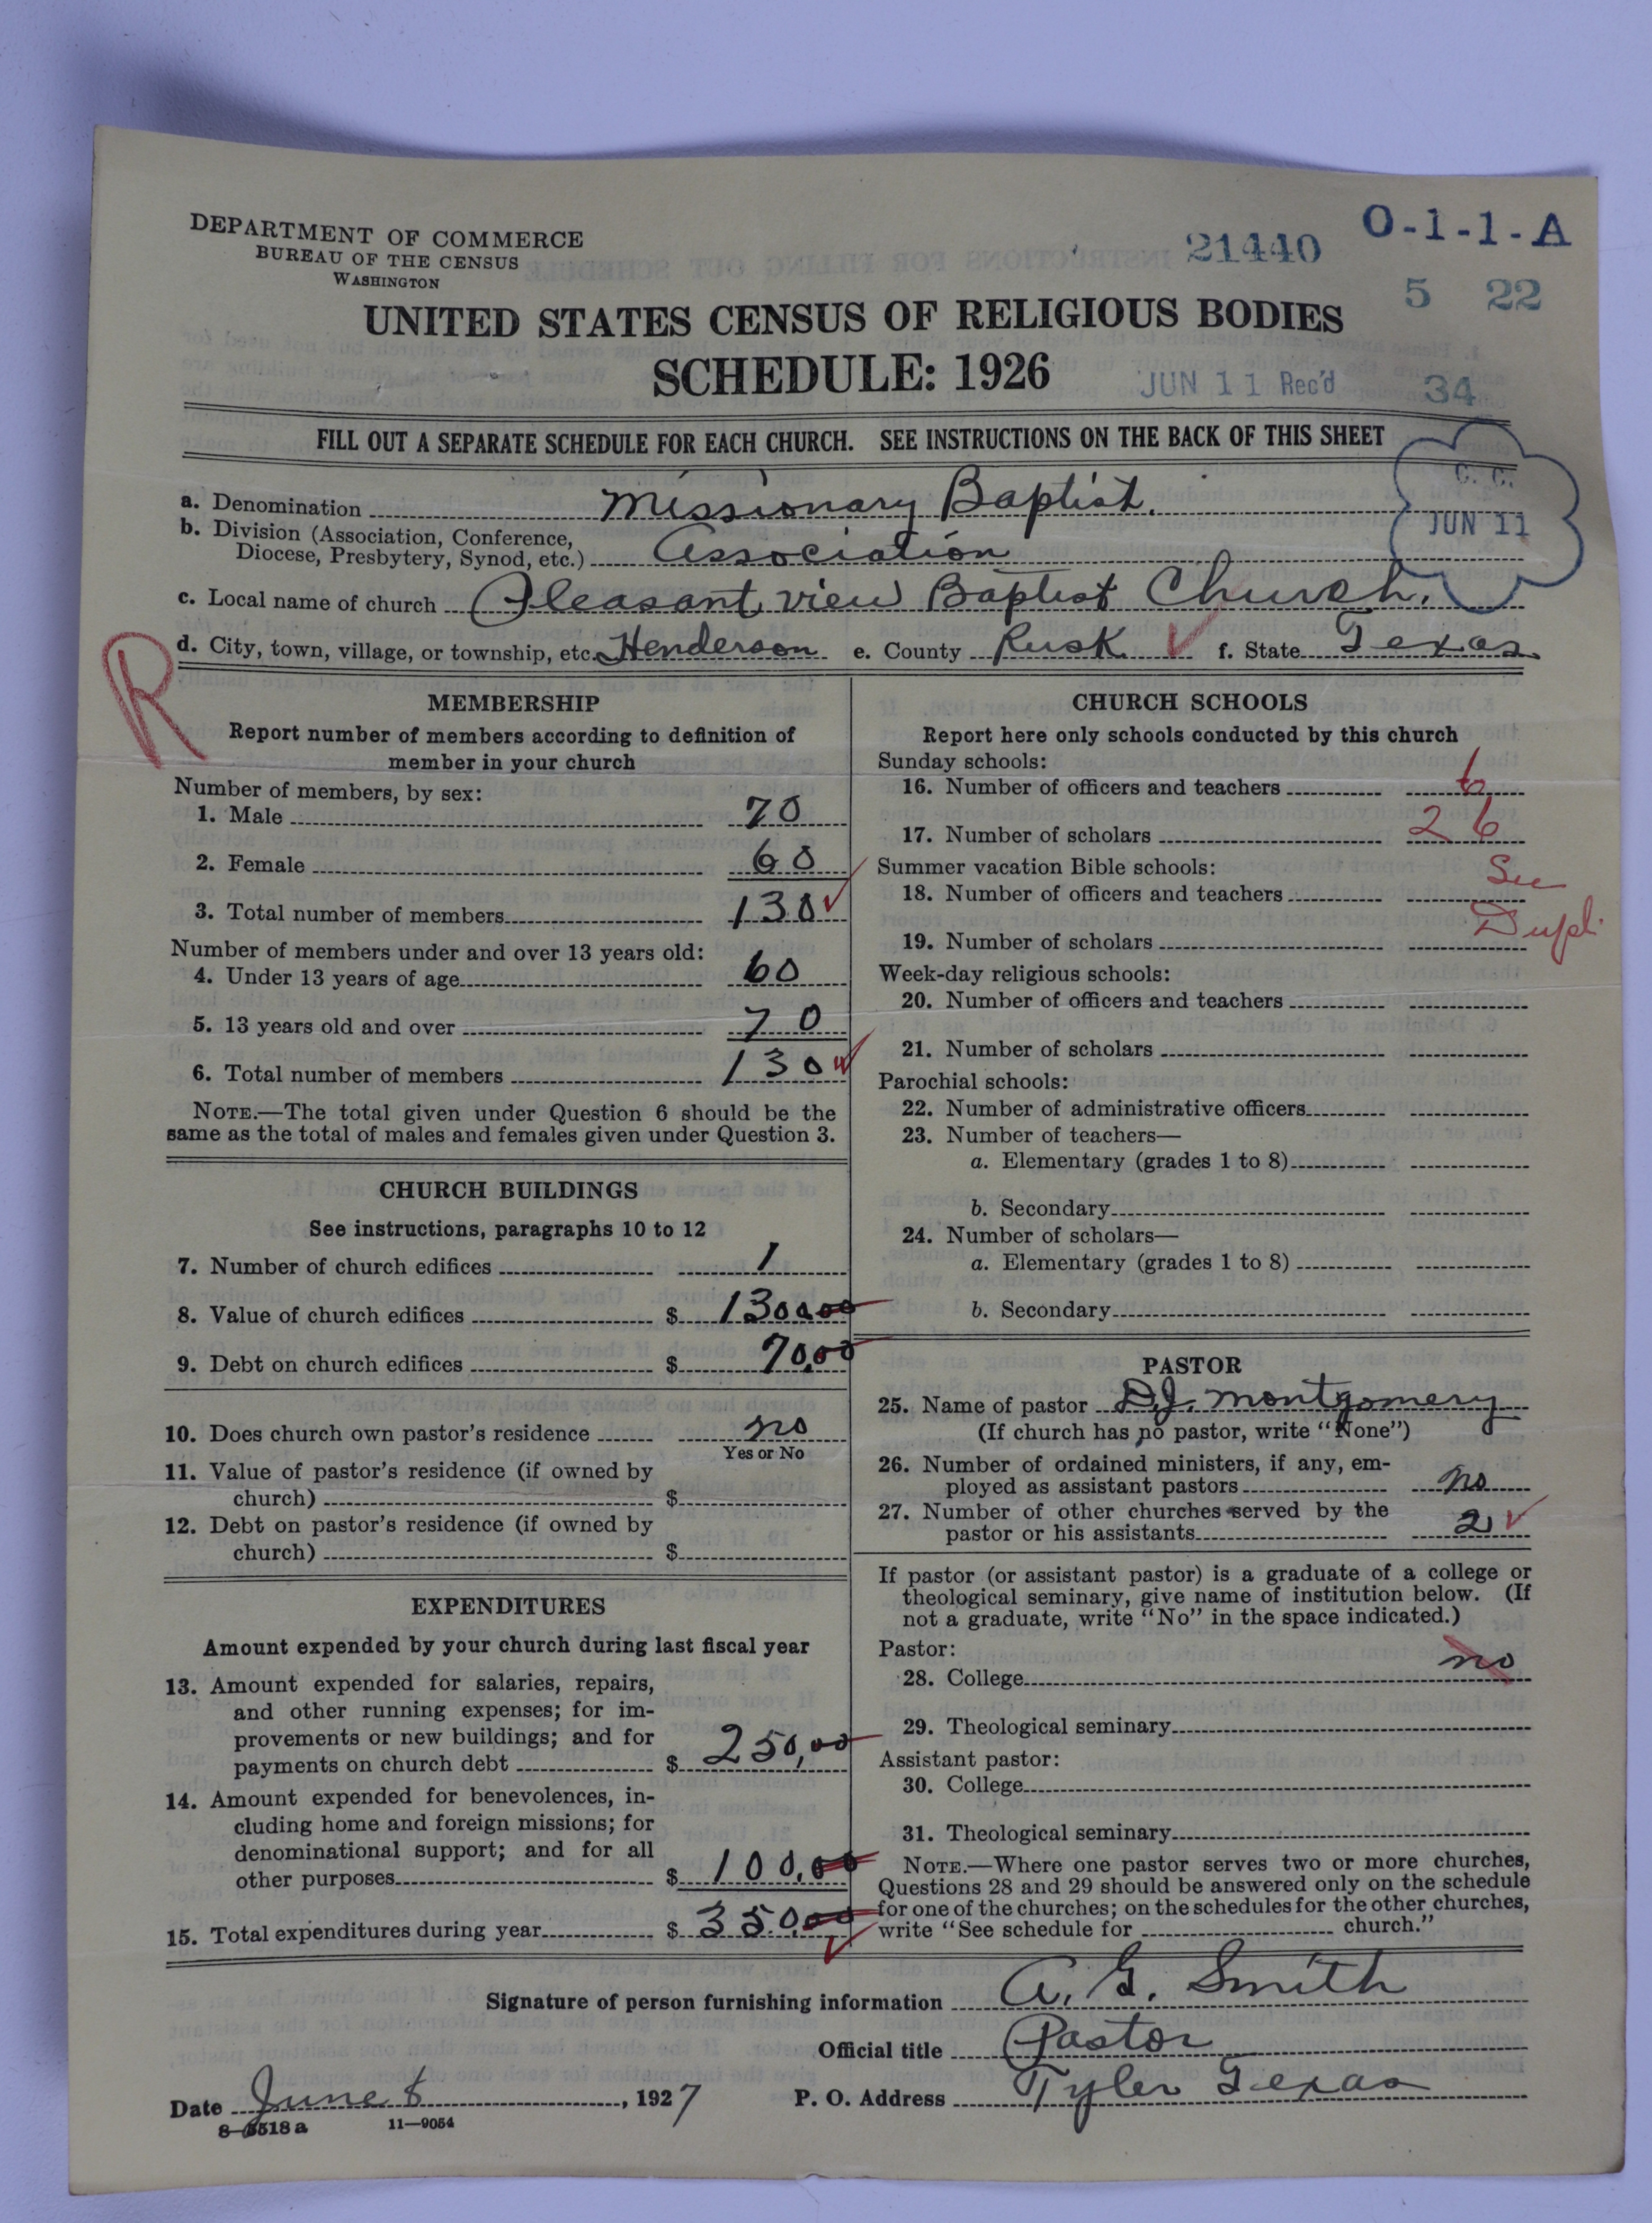 DEPARTMENT OF COMMERCE
BUREAU OF THE CENSUS
WASHINGTON
21440
O-1-1-A
5 22
UNITED STATES CENSUS OF RELIGIOUS BODIES
SCHEDULE: 1926
JUN 11 Rec'd
34
FILL OUT A SEPARATE SCHEDULE FOR EACH CHURCH. SEE INSTRUCTIONS ON THE BACK OF THIS SHEET
C. C.
JUN 11
a. Denomination Missionary Baptist.
b. Division (Association, Conference,
Diocese, Presbytery, Synod, etc.) Association
c. Local name of church Pleasant view Baptist Church.
d. City, town, village, or township, etc. Henderson e. County Rusk f. State Texas.
R
MEMBERSHIP
Report number of members according to definition of
member in your church
Number of members, by sex:
1. Male 70
2. Female 60
3. Total number of members 130
Number of members under and over 13 years old:
4. Under 13 years of age 60
5. 13 years old and over 70
6. Total number of members 130
NOTE.—The total given under Question 6 should be the
same as the total of males and females given under Question 3.
CHURCH BUILDINGS
See instructions, paragraphs 10 to 12
7. Number of church edifices 1
8. Value of church edifices $ 130000
9. Debt on church edifices $ 70,00
10. Does church own pastor's residence no
Yes or No
11. Value of pastor's residence (if owned by
church) $
12. Debt on pastor's residence (if owned by
church) $
EXPENDITURES
Amount expended by your church during last fiscal year
13. Amount expended for salaries, repairs,
and other running expenses; for im-
provements or new buildings; and for
payments on church debt $ 250,00
14. Amount expended for benevolences, in-
cluding home and foreign missions; for
denominational support; and for all
other purposes $ 100,00
15. Total expenditures during year $ 350,00
CHURCH SCHOOLS
Report here only schools conducted by this church
Sunday schools:
16. Number of officers and teachers 6
17. Number of scholars 26
Summer vacation Bible schools:
See
18. Number of officers and teachers
Dupl.
19. Number of scholars
Week-day religious schools:
20. Number of officers and teachers
21. Number of scholars
Parochial schools:
22. Number of administrative officers
23. Number of teachers—
a. Elementary (grades 1 to 8)
b. Secondary
24. Number of scholars—
a. Elementary (grades 1 to 8)
b. Secondary
PASTOR
25. Name of pastor D.J. Montgomery
(If church has no pastor, write "None")
26. Number of ordained ministers, if any, em-
ployed as assistant pastors no
27. Number of other churches served by the
pastor or his assistants 2
If pastor (or assistant pastor) is a graduate of a college or
theological seminary, give name of institution below. (If
not a graduate, write "No" in the space indicated.)
Pastor:
28. College no
29. Theological seminary
Assistant pastor:
30. College
31. Theological seminary
NOTE.—Where one pastor serves two or more churches,
Questions 28 and 29 should be answered only on the schedule
for one of the churches; on the schedules for the other churches,
write "See schedule for church."
Signature of person furnishing information A. G. Smith
Official title Pastor
Date June 8, 1927 P. O. Address Tyler Texas
8-5518a 11-9054